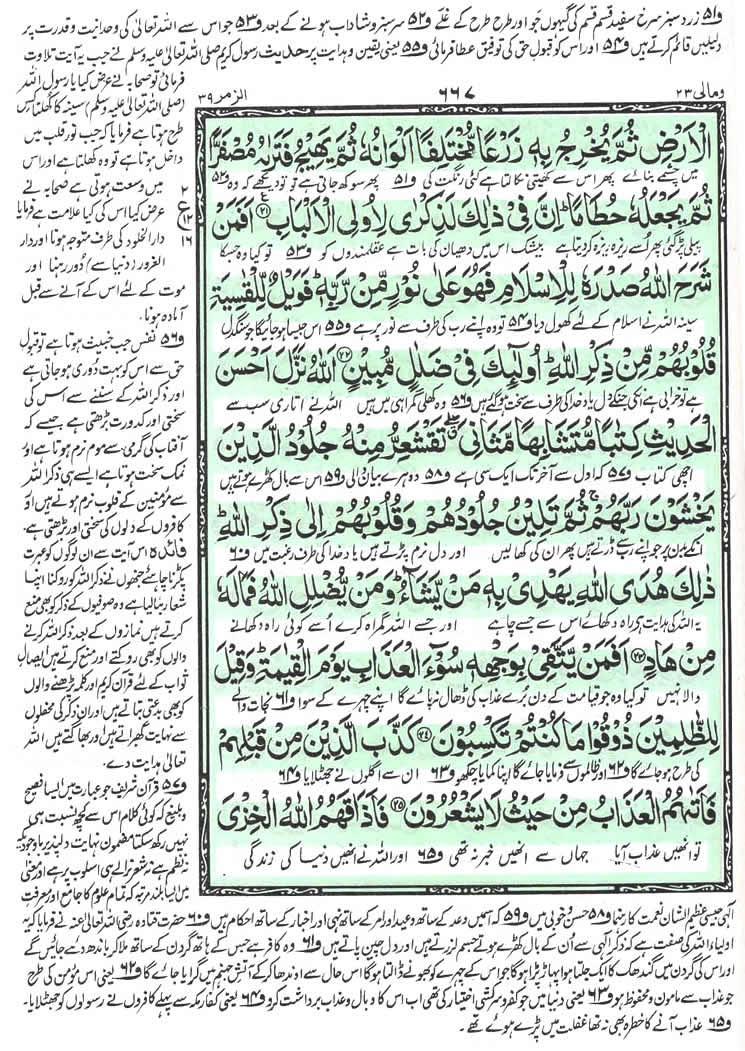 و۵۱ زرد سبز سرخ سفید قسم قسم کی گیہوں جَو اور طرح طرح کے غلّے و۵۲ سرسبز و شاداب ہونے کے بعد و۵۳ جو اس سے اللہ تعالیٰ کی وحدانیت و قدرت پر
دلیلیں قائم کرتے ہیں و۵۴ اور اس کو قبولِ حق کی توفیق عطا فرمائی و۵۵ یعنی یقین و ہدایت پر حدیث رسول کریم صلی اللہ تعالیٰ علیہ وسلم نے جب یہ آیت تلاوت
ومالی ۲۳
۶۶۷
الزمر ۳۹
الْاَرْضِ ثُمَّ یُخْرِجُ بِهٖ زَرْعًا مُّخْتَلِفًا اَلْوَانُهٗ ثُمَّ یَهِیْجُ فَتَرٰىهُ مُصْفَرًّا
میں چشمے بنائے پھر اس سے کھیتی نکالتا ہے کئی رنگت کی و۵۱ پھر سوکھ جاتی ہے تو تو دیکھے کہ وہ و۵۲
ثُمَّ یَجْعَلُهٗ حُطَامًاؕ اِنَّ فِیْ ذٰلِكَ لَذِكْرٰى لِاُولِی الْاَلْبَابِ۠(۲۱) اَفَمَنْ
پیلی پڑ گئی پھر اُسے ریزہ ریزہ کر دیتا ہے بیشک اس میں دھیان کی بات ہے عقلمندوں کو و۵۳ تو کیا وہ جسکا
شَرَحَ اللّٰهُ صَدْرَهٗ لِلْاِسْلَامِ فَهُوَ عَلٰى نُوْرٍ مِّنْ رَّبِّهٖؕ فَوَیْلٌ لِّلْقٰسِیَةِ
سینہ اللہ نے اسلام کے لئے کھول دیا و۵۴ تو وہ اپنے رب کی طرف سے نور پر ہے و۵۵ اس جیسا ہو جائیگا جو سنگدل
قُلُوْبُهُمْ مِّنْ ذِكْرِ اللّٰهِؕ اُولٰٓىٕكَ فِیْ ضَلٰلٍ مُّبِیْنٍ(۲۲) اَللّٰهُ نَزَّلَ اَحْسَنَ
ہے تو خرابی ہے انکی جنکے دل یادِ خدا کی طرف سے سخت ہو گئے ہیں و۵۶ وہ کھلی گمراہی میں ہیں اللہ نے اتاری سب سے
الْحَدِیْثِ كِتٰبًا مُّتَشَابِهًا مَّثَانِیَ تَقْشَعِرُّ مِنْهُ جُلُوْدُ الَّذِیْنَ
اچھی کتاب و۵۷ کہ اول سے آخر تک ایک سی ہے و۵۸ دوہرے بیان والی و۵۹ اس سے بال کھڑے ہوتے ہیں
یَخْشَوْنَ رَبَّهُمْۚ ثُمَّ تَلِیْنُ جُلُوْدُهُمْ وَ قُلُوْبُهُمْ اِلٰى ذِكْرِ اللّٰهِؕ
انکے بدن پر جو اپنے رب سے ڈرتے ہیں پھر ان کی کھالیں اور دل نرم پڑتے ہیں یادِ خدا کی طرف رغبت میں و۶۰
ذٰلِكَ هُدَى اللّٰهِ یَهْدِیْ بِهٖ مَنْ یَّشَآءُؕ وَ مَنْ یُّضْلِلِ اللّٰهُ فَمَا لَهٗ
یہ اللہ کی ہدایت ہے راہ دکھائے اس سے جسے چاہے اور جسے اللہ گمراہ کرے اُسے کوئی راہ دکھانے
مِنْ هَادٍ(۲۳) اَفَمَنْ یَّتَّقِیْ بِوَجْهِهٖ سُوْٓءَ الْعَذَابِ یَوْمَ الْقِیٰمَةِؕ وَ قِیْلَ
والا نہیں تو کیا وہ جو قیامت کے دن بُرے عذاب کی ڈھال نہ پائے گا اپنے چہرے کے سوا و۶۱ نجات والے
لِلظّٰلِمِیْنَ ذُوْقُوْا مَا كُنْتُمْ تَكْسِبُوْنَ(۲۴) كَذَّبَ الَّذِیْنَ مِنْ قَبْلِهِمْ
کی طرح ہو جائے گا و۶۲ اور ظالموں سے فرمایا جائے گا اپنا کمایا چکھو و۶۳ ان سے اگلوں نے جھٹلایا و۶۴
فَاَتٰىهُمُ الْعَذَابُ مِنْ حَیْثُ لَا یَشْعُرُوْنَ(۲۵) فَاَذَاقَهُمُ اللّٰهُ الْخِزْیَ
تو انھیں عذاب آیا جہاں سے انھیں خبر نہ تھی و۶۵ اور اللہ نے انھیں دنیا کی زندگی
فرمائی تو صحابہ نے عرض کیا یا رسول اللہ
(صلی اللہ تعالیٰ علیہ وسلم) سینہ کا کھلنا کس
طرح ہوتا ہے فرمایا کہ جب نور قلب میں
داخل ہوتا ہے تو وہ کھلتا ہے اور اس
میں وسعت ہوتی ہے صحابہ نے
عرض کیا اس کی کیا علامت ہے فرمایا
دارالخلود کی طرف متوجہ ہونا اور دار
الغرور (دنیا سے) دُور رہنا اور
موت کے لئے اس کے آنے سے قبل
آمادہ ہونا۔
۲
ع
۱۲
۱۶
و۵۶ نفس جب خبیث ہوتا ہے تو قبولِ
حق سے اس کو بہت دُوری ہو جاتی ہے
اور ذکر اللہ کے سننے سے اس کی
سختی اور کدورت بڑھتی ہے جیسے کہ
آفتاب کی گرمی سے موم نرم ہوتا ہے اور
نمک سخت ہوتا ہے ایسے ہی ذکر اللہ
سے مومنین کے قلوب نرم ہوتے ہیں اور
کافروں کے دلوں کی سختی اور بڑھتی ہے
فائدہ اس آیت سے ان لوگوں کو عبرت
پکڑنا چاہئے جنھوں نے ذکر اللہ کو روکنا اپنا
شعار بنا لیا ہے وہ صوفیوں کے ذکر کو بھی منع
کرتے ہیں نمازوں کے بعد ذکر اللہ کرنے
والوں کو بھی روکتے اور منع کرتے ہیں ایصالِ
ثواب کے لئے قرآن کریم اور کلمہ پڑھنے والوں
کو بھی بدعتی بتاتے ہیں اور ان ذکر کی محفلوں
سے نہایت گھبراتے ہیں اور بھاگتے ہیں اللہ
تعالیٰ ہدایت دے۔
و۵۷ قرآن شریف جو عبارت میں ایسا فصیح
و بلیغ کہ کوئی کلام اس سے کچھ نسبت ہی
نہیں رکھ سکتا مضمون نہایت دلپذیر باوجودیکہ
نہ نظم ہے نہ شعر نرالے ہی اسلوب پر ہے اور معنیٰ
میں ایسا بلند مرتبہ کہ تمام علوم کا جامع اور معرفتِ
الٰہی جیسی عظیم الشان نعمت کا رہنما و۵۸ حسن و خوبی میں و۵۹ کہ اسمیں وعدہ کے ساتھ وعید اور امر کے ساتھ نہی اور اخبار کے ساتھ احکام ہیں و۶۰ حضرت قتادہ رضی اللہ تعالیٰ عنہ نے فرمایا کہ یہ
اولیاء اللہ کی صفت ہے کہ ذکرِ الٰہی سے اُن کے بال کھڑے ہوتے جسم لرزتے ہیں اور دل چین پاتے ہیں و۶۱ وہ کافر ہے جس کے ہاتھ گردن کے ساتھ ملا کر باندھ دیے جائیں گے
اور اس کی گردن میں گندھک کا ایک جلتا ہوا پہاڑ پڑا ہوگا جو اس کے چہرے کو بھونے ڈالتا ہوگا اس حال سے اوندھا کر کے آتشِ جہنم میں گرایا جائے گا و۶۲ یعنی اس مومن کی طرح
جو عذاب سے مامون و محفوظ ہو و۶۳ یعنی دنیا میں جو کفر و سرکشی اختیار کی تھی اب اس کا وبال و عذاب برداشت کرو و۶۴ یعنی کفارِ مکہ سے پہلے کافروں نے رسولوں کو جھٹلایا۔
و۶۵ عذاب آنے کا خطرہ بھی نہ تھا غفلت میں پڑے ہوئے تھے۔